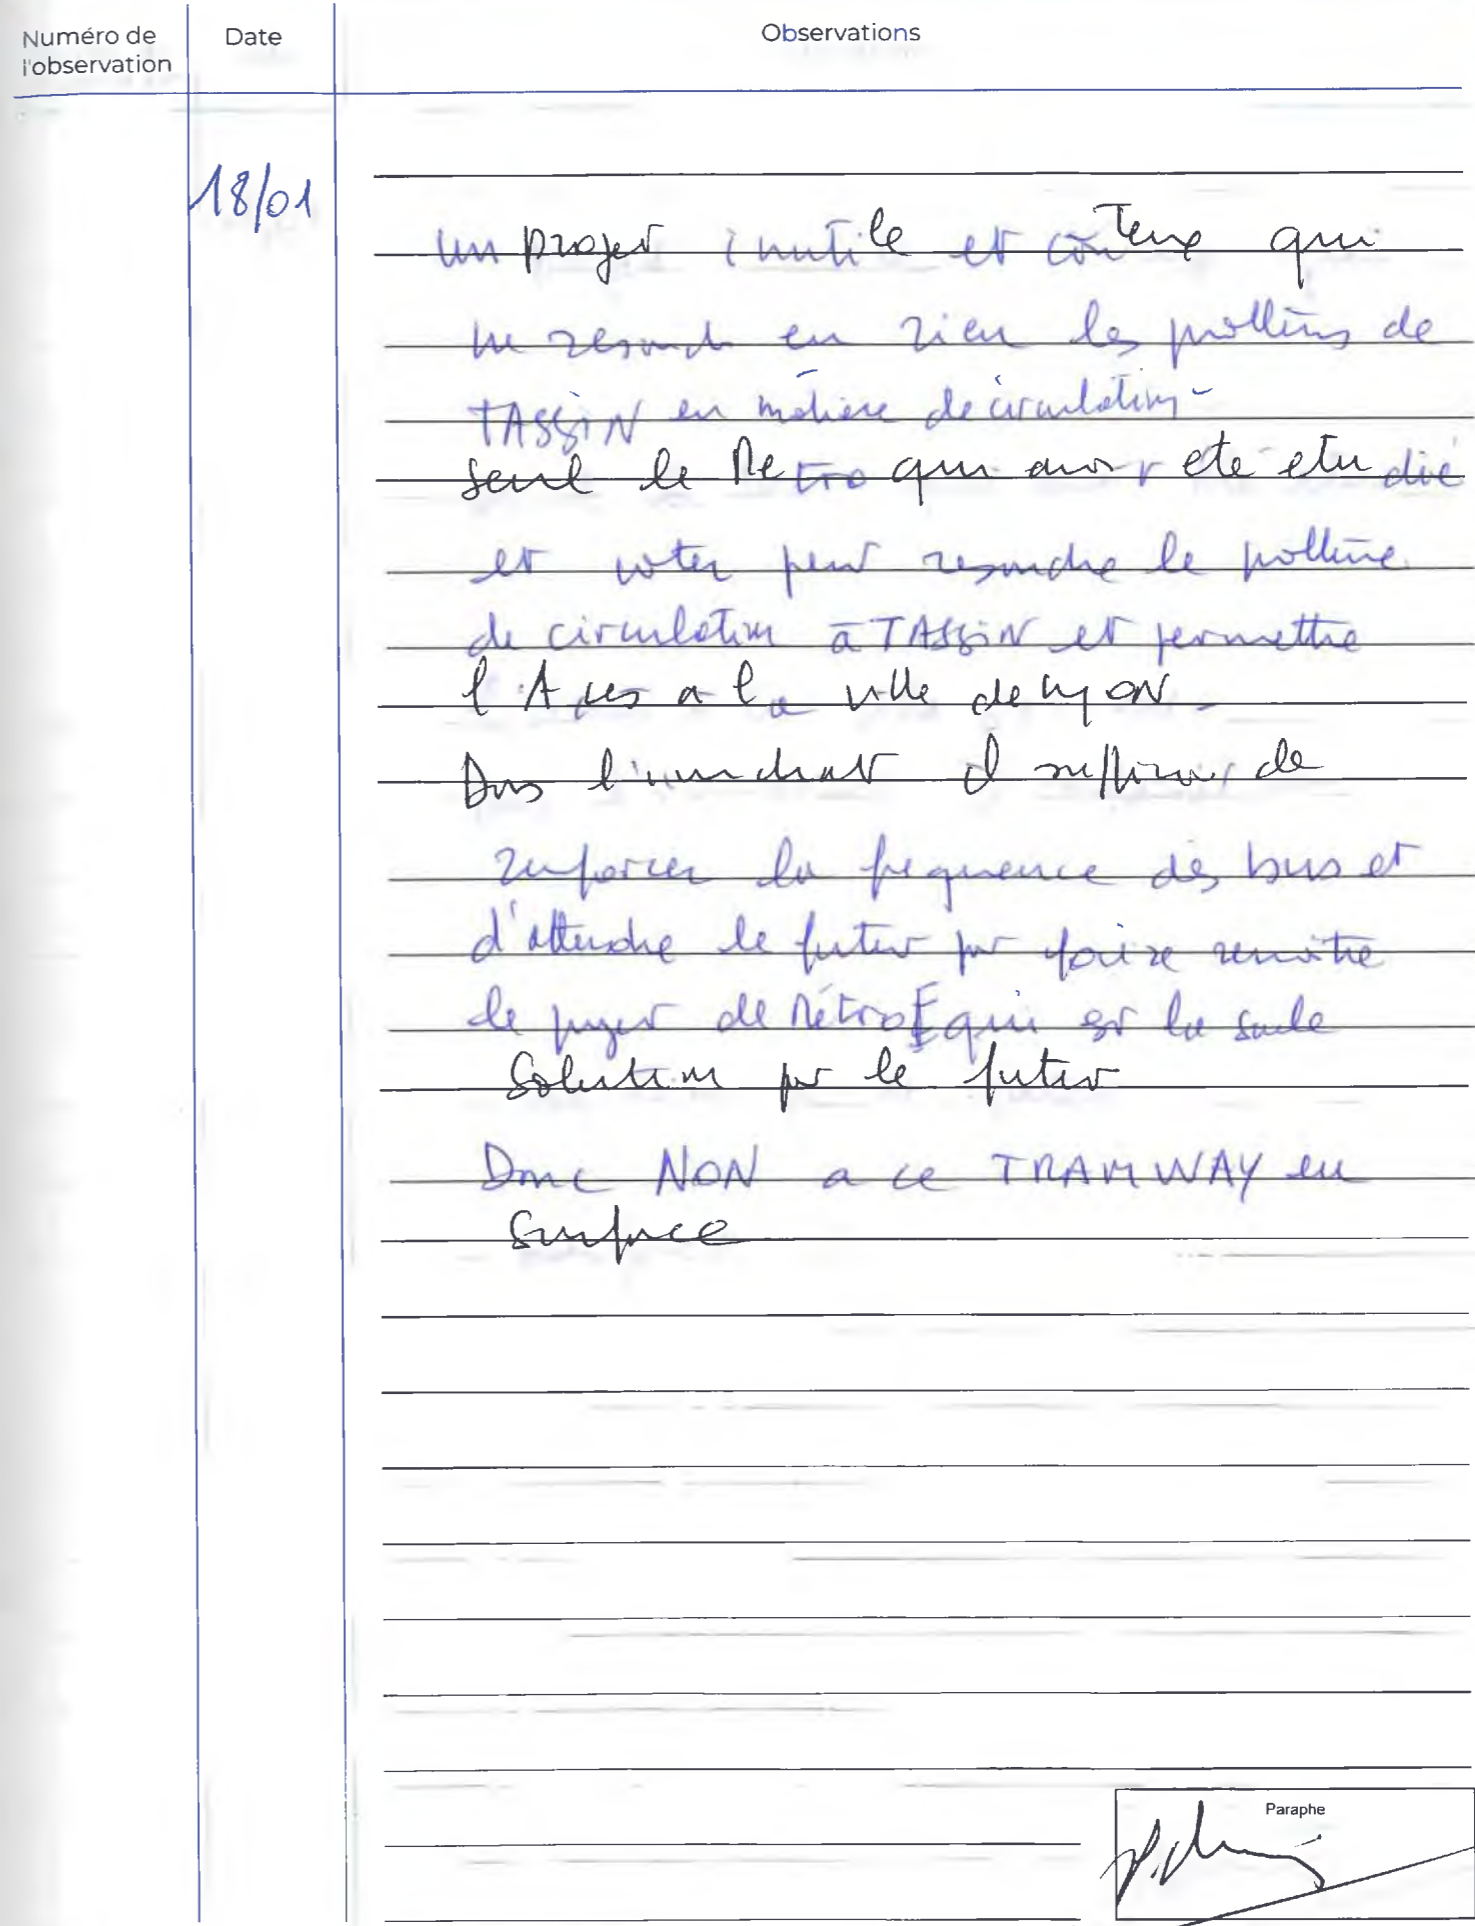 Numéro de Date Observations
l'observation
18/01
Un projet inutile et coûteux qui
ne resoud en rien les problèms de
TASSIN en matière de circulation -
seul le Metro qui avait ete etudié
et voter peut resoudre le problème
de circulation à TASSIN et permettre
l'Acces a la ville de Lyon -
Dans l'immediat il suffirait de
renforcer la frequence des bus et
d'attendre le futur pr faire renaitre
le projet de Métro E qui est la seule
Solution pr le futur
Donc NON a ce TRAMWAY en
surface
Paraphe